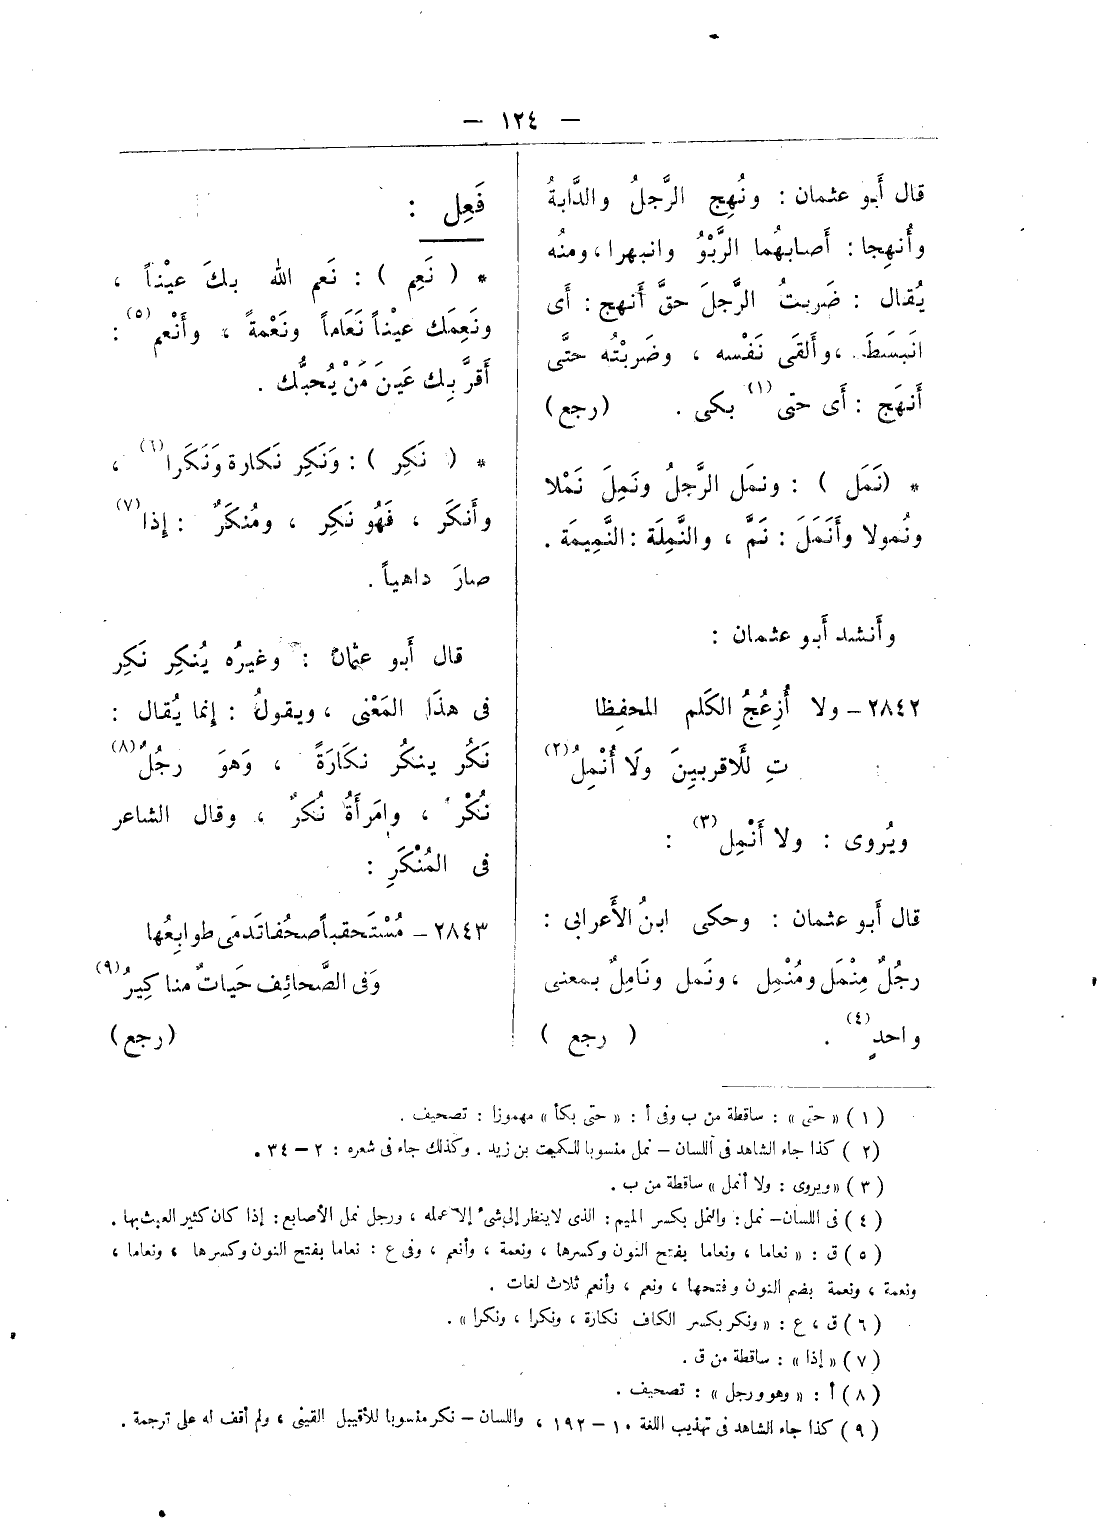 — ١٢٤ —
قال أَبو عثمان : ونُهِج الرَّجلُ والدَّابةُ
وأُنهِجا : أَصابهُما الرَّبْوُ وانبهرا ، ومنُه
يُقال : ضَربتُ الرَّجلَ حقَّ أَنهج : أَى
انَبسَطَ ، وأَلقَى نَفْسه ، وضَربْتُه حتَّى
أَنهَج : أَى حتى (١) بكى . (رجع)
* (نَمَل ) : ونمَل الرَّجلُ ونَمِلَ نَمْلا
ونُمولا وأَنَمَلَ : نَمَّ ، والنَّمِلَة : النَّمِيمَة .
وأَنشد أَبو عثمان :
٢٨٤٢ – ولا أُزعُجُ الكَلم المحفِظا
تِ للَأقربيِنَ ولَا أُنْمِلُ (٢)
ويُروى : ولا أَنْمِل (٣) :
قال أَبو عثمان : وحكى ابنُ الأَعرابى :
رجُلٌ مِنْمَل ومُنْمِل ، ونَمل ونَامِلٌ بمعنى
واحدٍ (٤) . ( رجع )
فَعِل :
* ( نَعِم ) : نَعم الله بكَ عيْناً ،
ونَعِمَك عيْناً نَعَاماً ونَعْمةً ، وأَنْعم (٥) :
أَقرَّ بِك عَينَ مَنْ يُحبُّك .
* ( نَكِر ) : وَنَكِر نَكارة وَنَكَرا (٦) ،
وأَنكَر ، فَهُو نَكِر ، ومُنكَرٌ : إِذا (٧)
صارَ داهياً .
قال أَبو عثمان : وغيرُه يُنكِر نَكِر
فى هذَا المَعْنى ، ويقولُ : إِنما يُقال :
نَكُر ينكُر نكَارَةً ، وَهوَ رجُلٌ (٨)
نُكْر ، وامَرأَةٌ نُكرٌ ، وقال الشاعر
فى المُنْكَرِ :
٢٨٤٣ – مُسْتَحقباً صحُفا تَدمَى طوابِعُها
وَفى الصَّحائِف حَيات مناكِيرُ (٩)
(رجع)
(١) « حتى » : ساقطة من ب وفى أ : « حتى بكأ » مهموزا : تصحيف .
(٢) كذا جاء الشاهد فى اللسان – نمل منسوبا للكميت بن زيد . وكذلك جاء فى شعره : ٢ – ٣٤ .
(٣) « ويروى : ولا أنمل » ساقطة من ب .
(٤) فى اللسان – نمل : والنمل بكسر الميم : الذى لاينظر إلى شىء إلا عمله ، ورجل نمل الأصابع : إذا كان كثير العبث بها .
(٥) ق : « نعاما ، ونعاما بفتح النون وكسرها ، ونعمة ، وأنعم ، وفى ع : نعاما بفتح النون وكسرها ، ونعاما ،
ونعمة ، ونعمة بضم النون وفتحها ، ونعم ، وأنعم ثلاث لغات .
(٦) ق ، ع : « ونكر بكسر الكاف نكارة ، ونكرا ، ونكرا » .
(٧) « إذا » : ساقطة من ق .
(٨) أ : « وهو ورجل » : تصحيف .
(٩) كذا جاء الشاهد فى تهذيب اللغة ١٠ – ١٩٢ ، واللسان – نكر منسوبا للأقيبل القينى ، ولم أقف له على ترجمة .